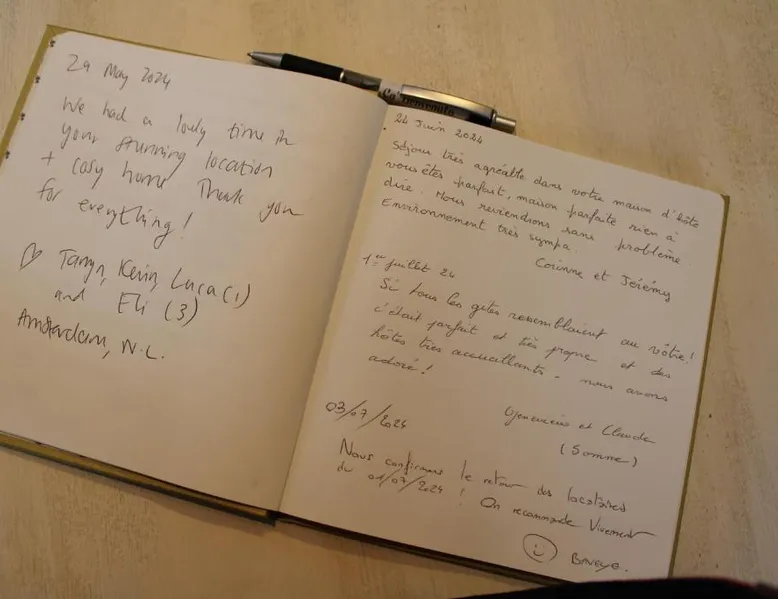 29 May 2024
We had a lovly time in
your stunning location
+ cosy home Thank you
for everything!
♡ Taryn, Kevin, Luca (1)
and Eli (3)
Amsterdam, N.L.
24 Juin 2024
Séjour très agréable dans votre maison d'hôte
vous êtes parfait, maison parfaite rien à
dire. Nous reviendrons sans problème
Environnement très sympa.
Corinne et Jérémy
1er juillet 24
Si tous les gites ressemblaient au vôtre!
c'était parfait et très propre et des
hôtes très accueillants - nous avons
adoré!
et Claude
(Somme)
03/07/2024
Nous confirmons le retour des locataires
du 01/07/2024 ! On recommande Vivement